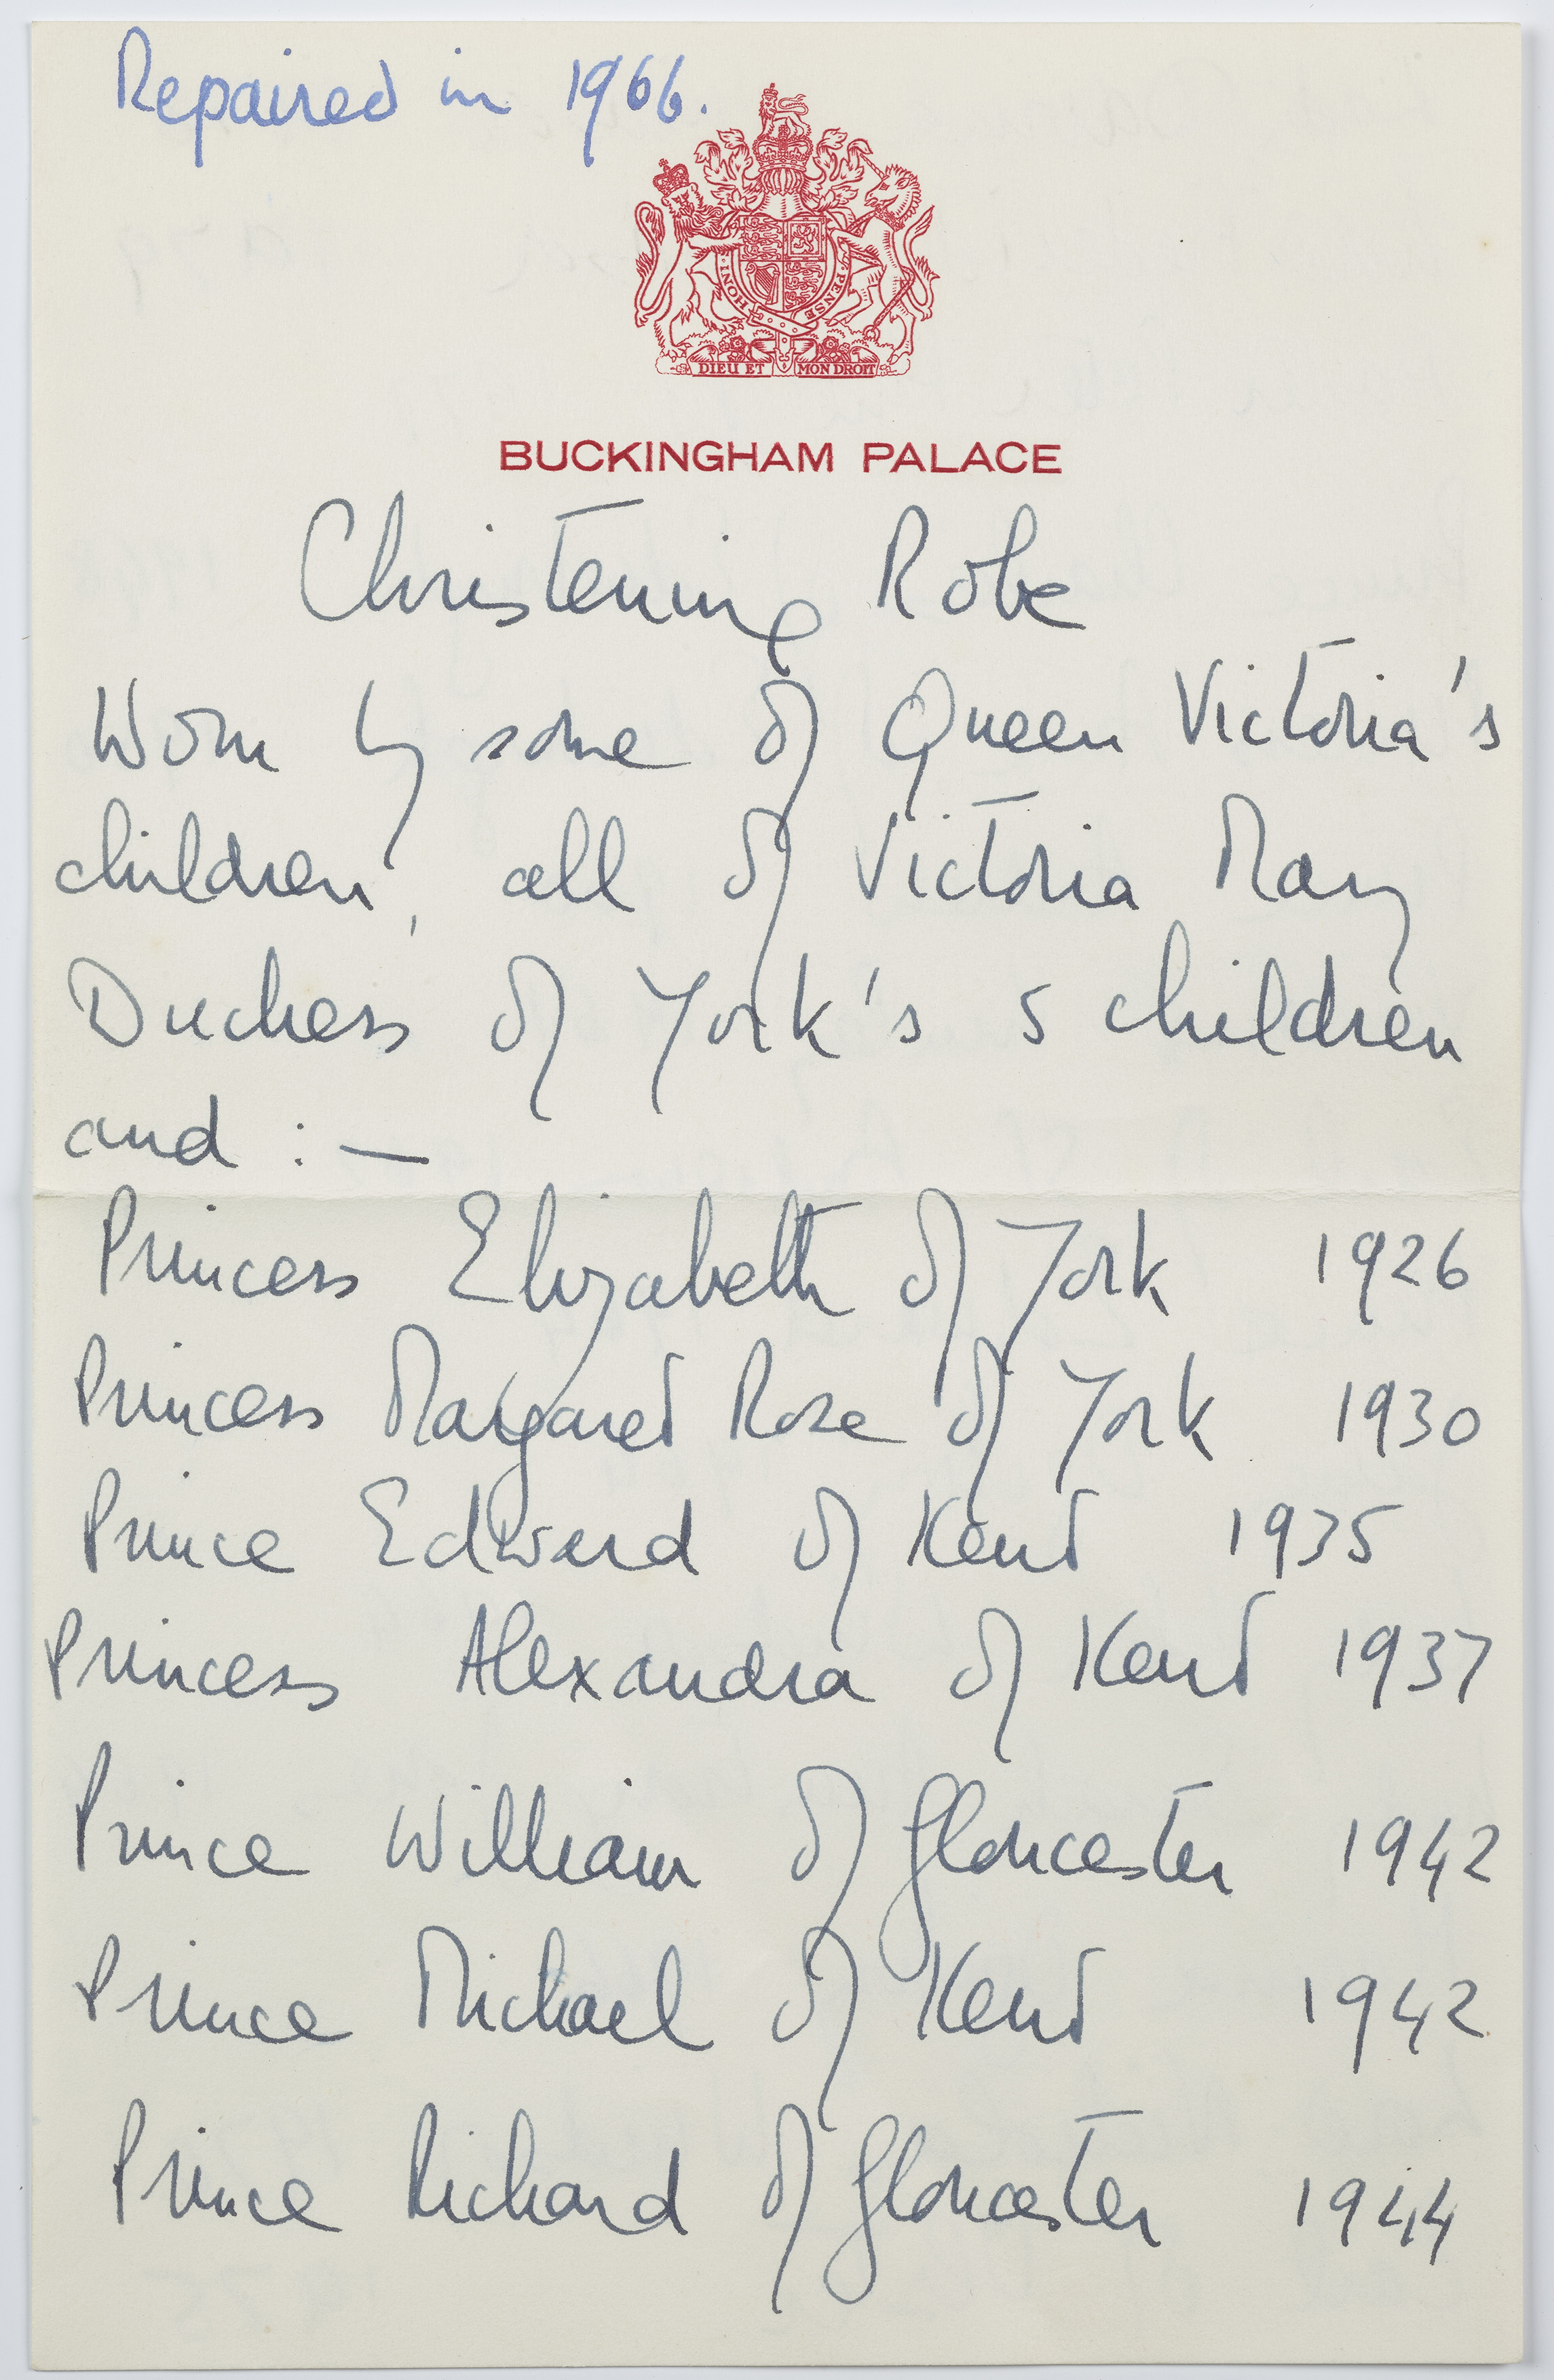 Repaired in 1966.
HONI PENSE
DIEU ET MON DROIT
BUCKINGHAM PALACE
Christening Robe
Worn by some of Queen Victoria's
children, all of Victoria Mary
Duchess of York's 5 children
and : —
Princess Elizabeth of York 1926
Princess Margaret Rose of York 1930
Prince Edward of Kent 1935
Princess Alexandra of Kent 1937
Prince William of Gloucester 1942
Prince Michael of Kent 1942
Prince Richard of Gloucester 1944